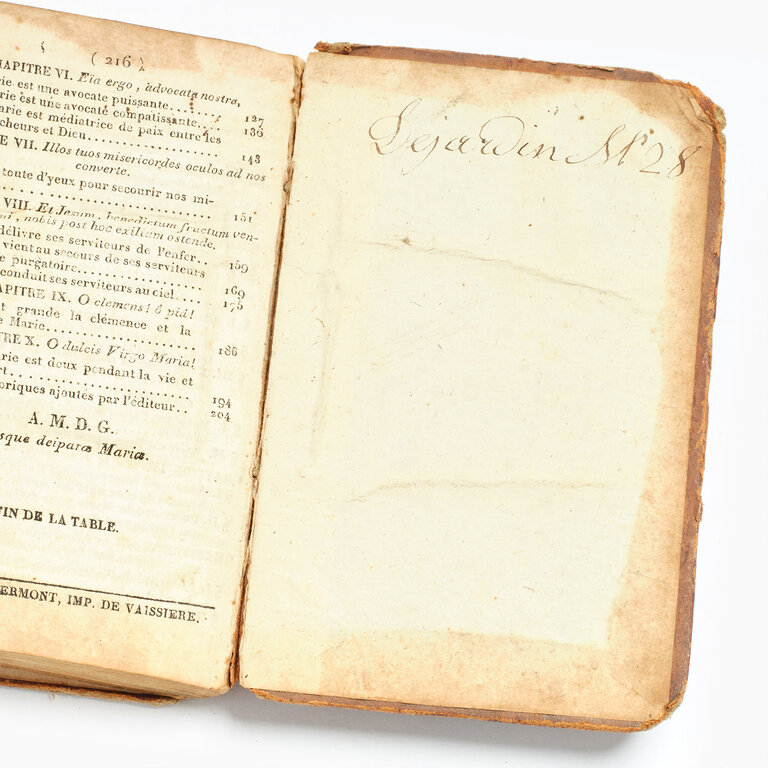 ( 216 )
HAPITRE VI. Eïa ergo, advocata nostra,
rie est une avocate puissante....... 127
arie est une avocate compatissante.... 136
arie est médiatrice de paix entre les
cheurs et Dieu..................... 143
E VII. Illos tuos misericordes oculos ad nos
converte.
toute d'yeux pour secourir nos mi-
................................. 151
VIII. Et Jesum, benedictum fructum ven-
nobis post hoc exilium ostende.
délivre ses serviteurs de l'enfer.. 159
vient au secours de ses serviteurs
e purgatoire.................. 169
conduit ses serviteurs au ciel.... 175
APITRE IX. O clemens! ô pia!
t grande la clémence et la
e Marie...................... 186
TRE X. O dulcis Virgo Maria!
arie est deux pendant la vie et
rt.......................... 194
oriques ajoutés par l'éditeur.. 204
A. M. D. G.
sque deiparæ Mariæ.
FIN DE LA TABLE.
ERMONT, IMP. DE VAISSIERE.
Dejardin Nº 28